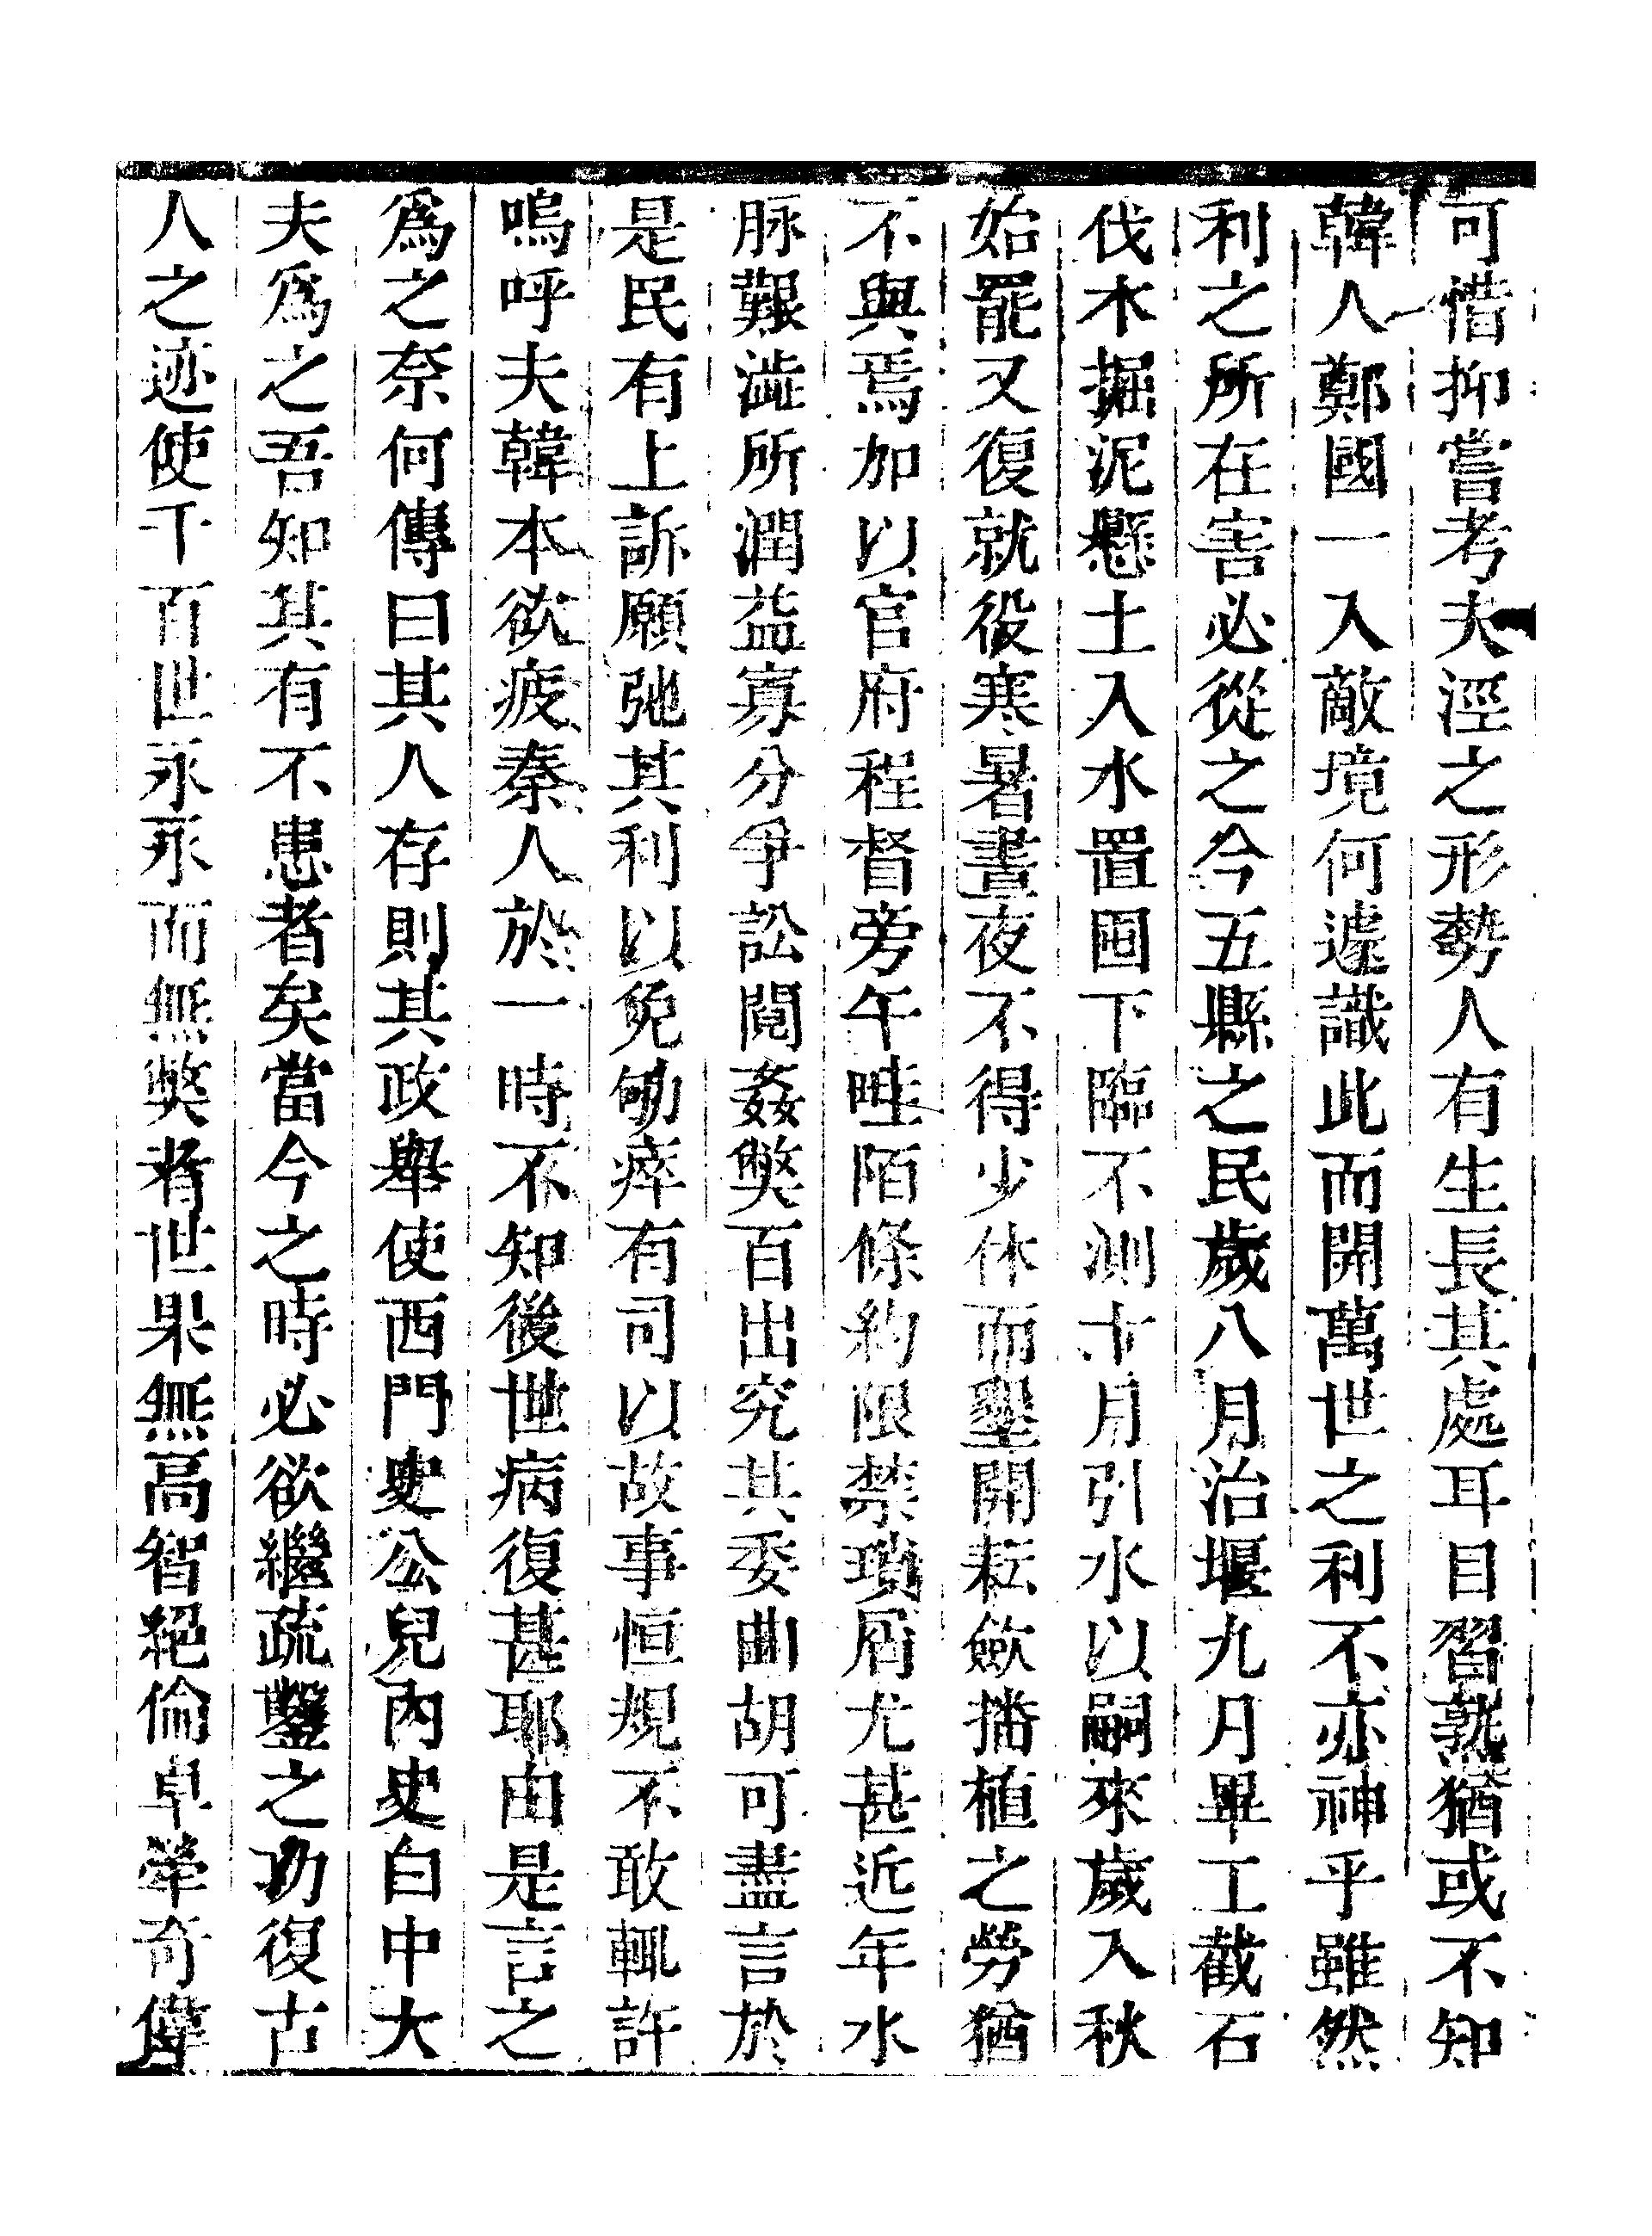 可惜抑嘗考夫涇之形勢人有生長其處耳目習熟猶或不知
韓人鄭國一入敵境何遽識此而開萬世之利不亦神乎雖然
利之所在害必從之今五縣之民歲八月治堰九月畢工截石
伐木掘泥懸土入水置囤下臨不測十月引水以嗣來歲入秋
始罷又復就役寒暑晝夜不得少休而墾開耘斂播植之勞猶
不與焉加以官府程督旁午畦陌條約限禁瑣屑尤甚近年水
脉艱澁所潤益寡分爭訟鬩姦獘百出究其委曲胡可盡言於
是民有上訴願弛其利以免劬瘁有司以故事恒規不敢輒許
嗚呼夫韓本欲疲秦人於一時不知後世病復甚耶由是言之
爲之奈何傳曰其人存則其政舉使西門史公兒內史白中大
夫爲之吾知其有不患者矣當今之時必欲繼疏鑿之功復古
人之迹使千百世永永而無獘者世果無高智絕倫卓犖奇偉